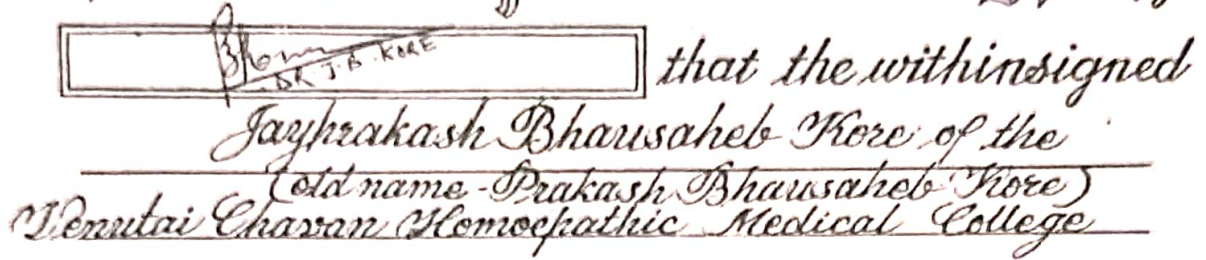 DR. J. B. KORE
that the withinsigned
Jayprakash Bhausaheb Kore of the
(old name - Prakash Bhausaheb Kore)
Venutai Chavan Homoepathic Medical College